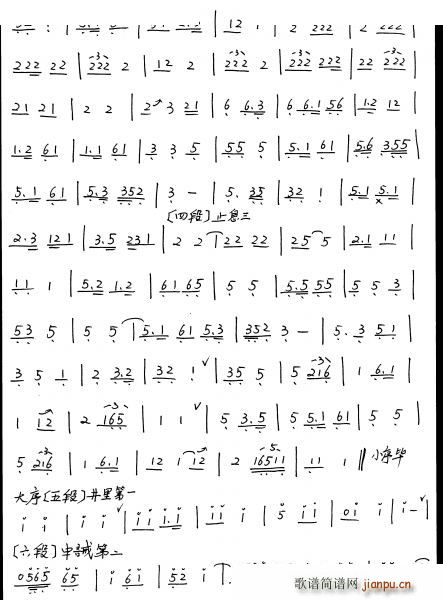 222 22 | 222 2 | 12 2 | 222 2 | 222 222 | 22 222 |
21 21 | 2 2 | 2 3 21 | 6 6.3 | 6 6.1 56 | 1.2 12 |
1.2 61 | 1.1 61 | 3 3 5 | 55 5 | 5.1 61 | 5.6 355 |
5.1 61 | 5.3 352 | 3 — | 5. 35 | 32 1 | 5.1 5.1 |
[四段]止息三
2.3 121 | 3.5 231 | 2 2 | 22 22 | 25 5 | 2.1 11 |
11 1 | 5.2 1.2 | 61 65 | 5 5 | 5.5 55 | 5 5 3 |
53 5 | 5 5 | 5.1 61 5.3 | 352 3 — | 5. 3 51 |
3 5 1 | 2 3.2 | 32 1 ∨ | 35 5 | 5 216 | 1 6.1 |
1 12 | 2 165 | 1 1 ∨ | 5 3.5 | 5 5.1 61 | 5 5 |
5 216 | 1 6.1 | 12 1 12 | 2 16511 | 11 1 ‖ 小序毕
大序[五段]井里第一
i i | i i ∨ | i i i.i | i i i | 5 i i | 0i i | i — ∨ |
[六段]申诚第二
0565 65 | i 6i | 52 i | .
歌谱简谱网
jianpu.cn